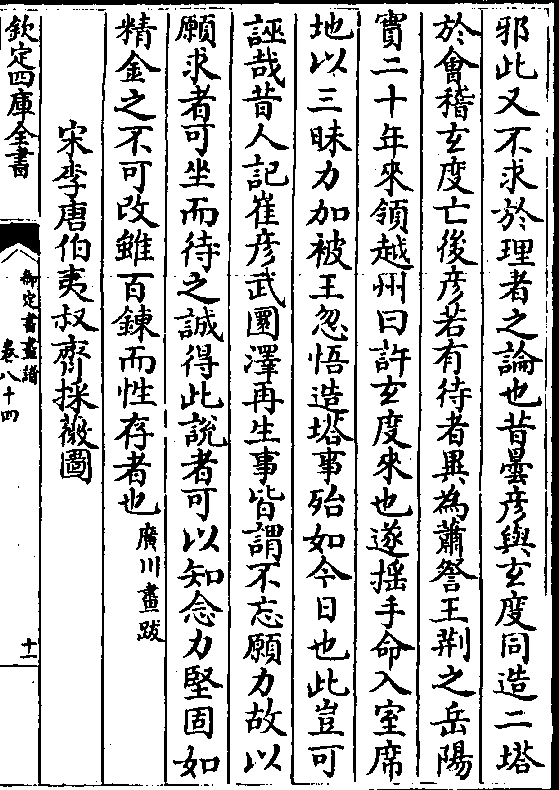 邪此又不求於理者之論也昔曇彦與玄度同造二塔
於會稽玄度亡後彦若有待者異為蕭詧王荆之岳陽
實二十年來領越州曰許玄度來也遂揺手命入室席
地以三昧力加被王忽悟造塔事殆如今日也此豈可
誣哉昔人記崔彦武圜澤再生事皆謂不忘願力故以
願求者可坐而待之誠得此說者可以知念力堅固如
精金之不可改雖百鍊而性存者也廣川畫跋
宋李唐伯夷叔齊採薇圖
欽定四庫全書
御定書畫譜
卷八十四
十一